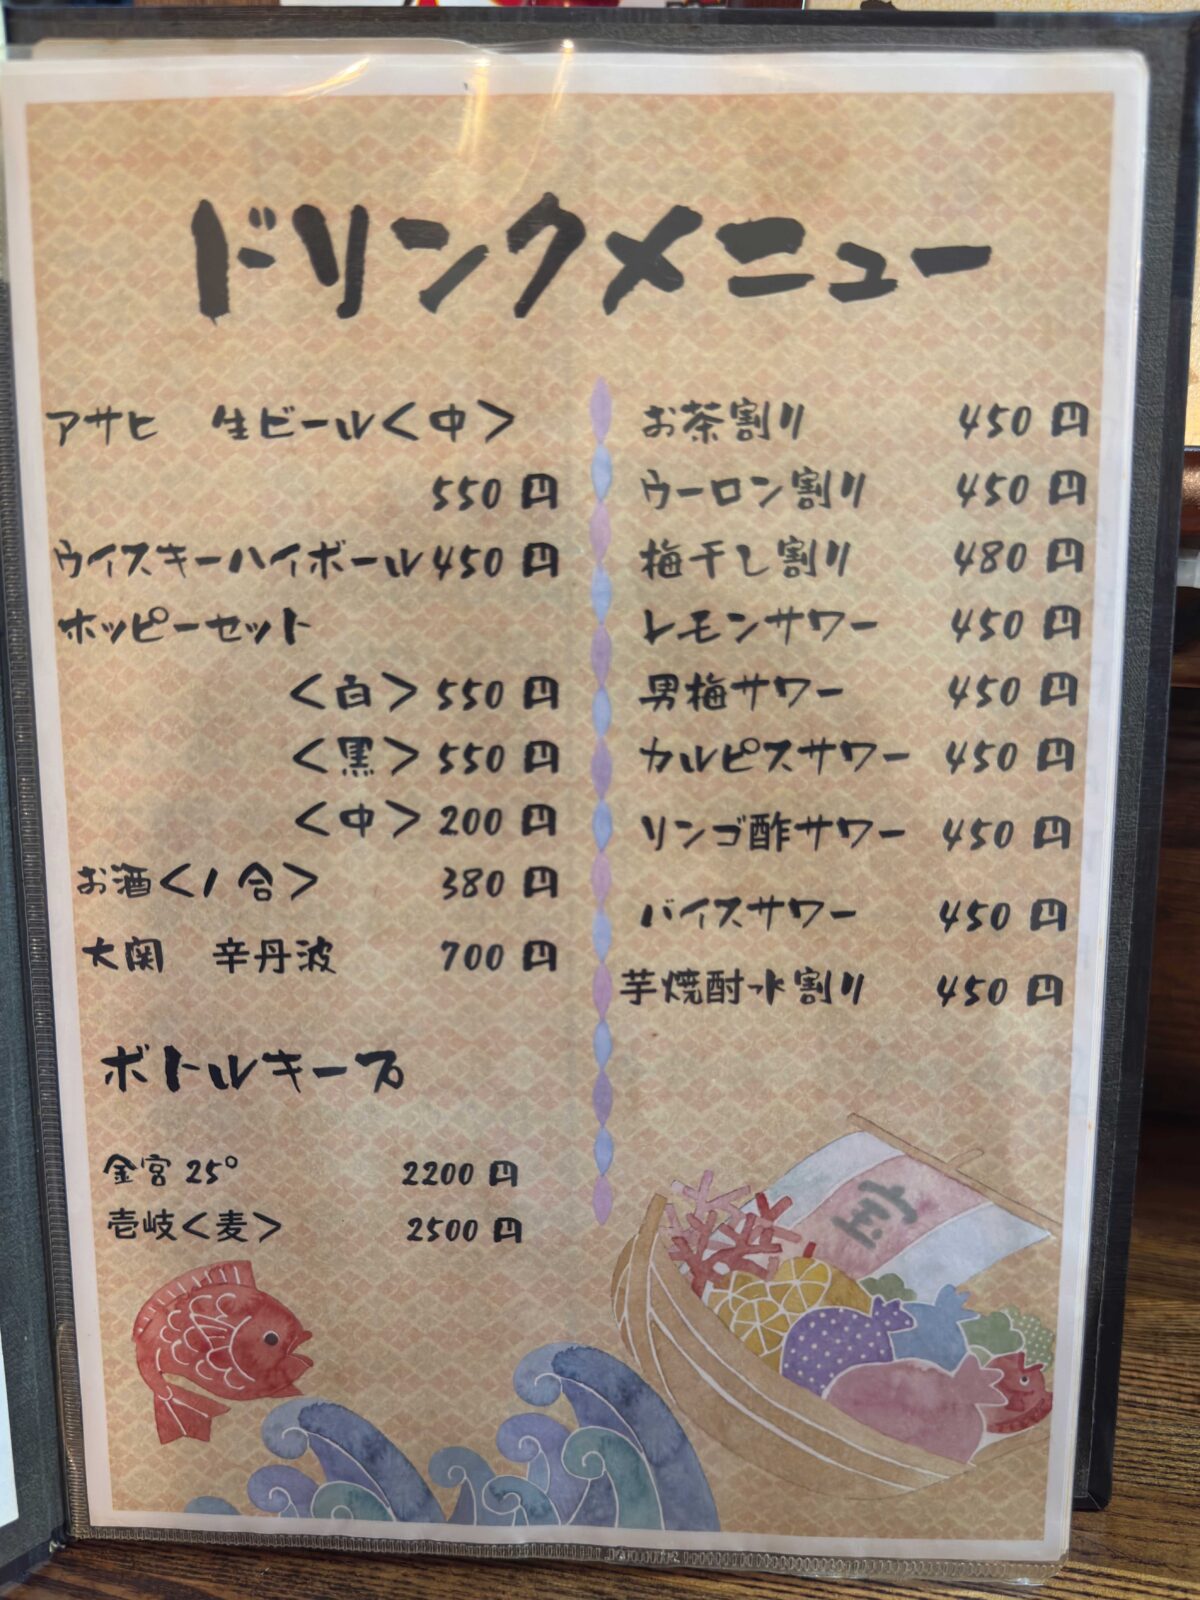 ドリンクメニュー
アサヒ 生ビール<中>
550 円
ウイスキーハイボール 450 円
ホッピーセット
<白> 550 円
<黒> 550 円
<中> 200 円
お酒<1合> 380 円
大関 辛丹波 700 円
ボトルキープ
金宮 25° 2200 円
壱岐<麦> 2500 円
お茶割り 450 円
ウーロン割り 450 円
梅干し割り 480 円
レモンサワー 450 円
男梅サワー 450 円
カルピスサワー 450 円
リンゴ酢サワー 450 円
バイスサワー 450 円
芋焼酎水割り 450 円
宝